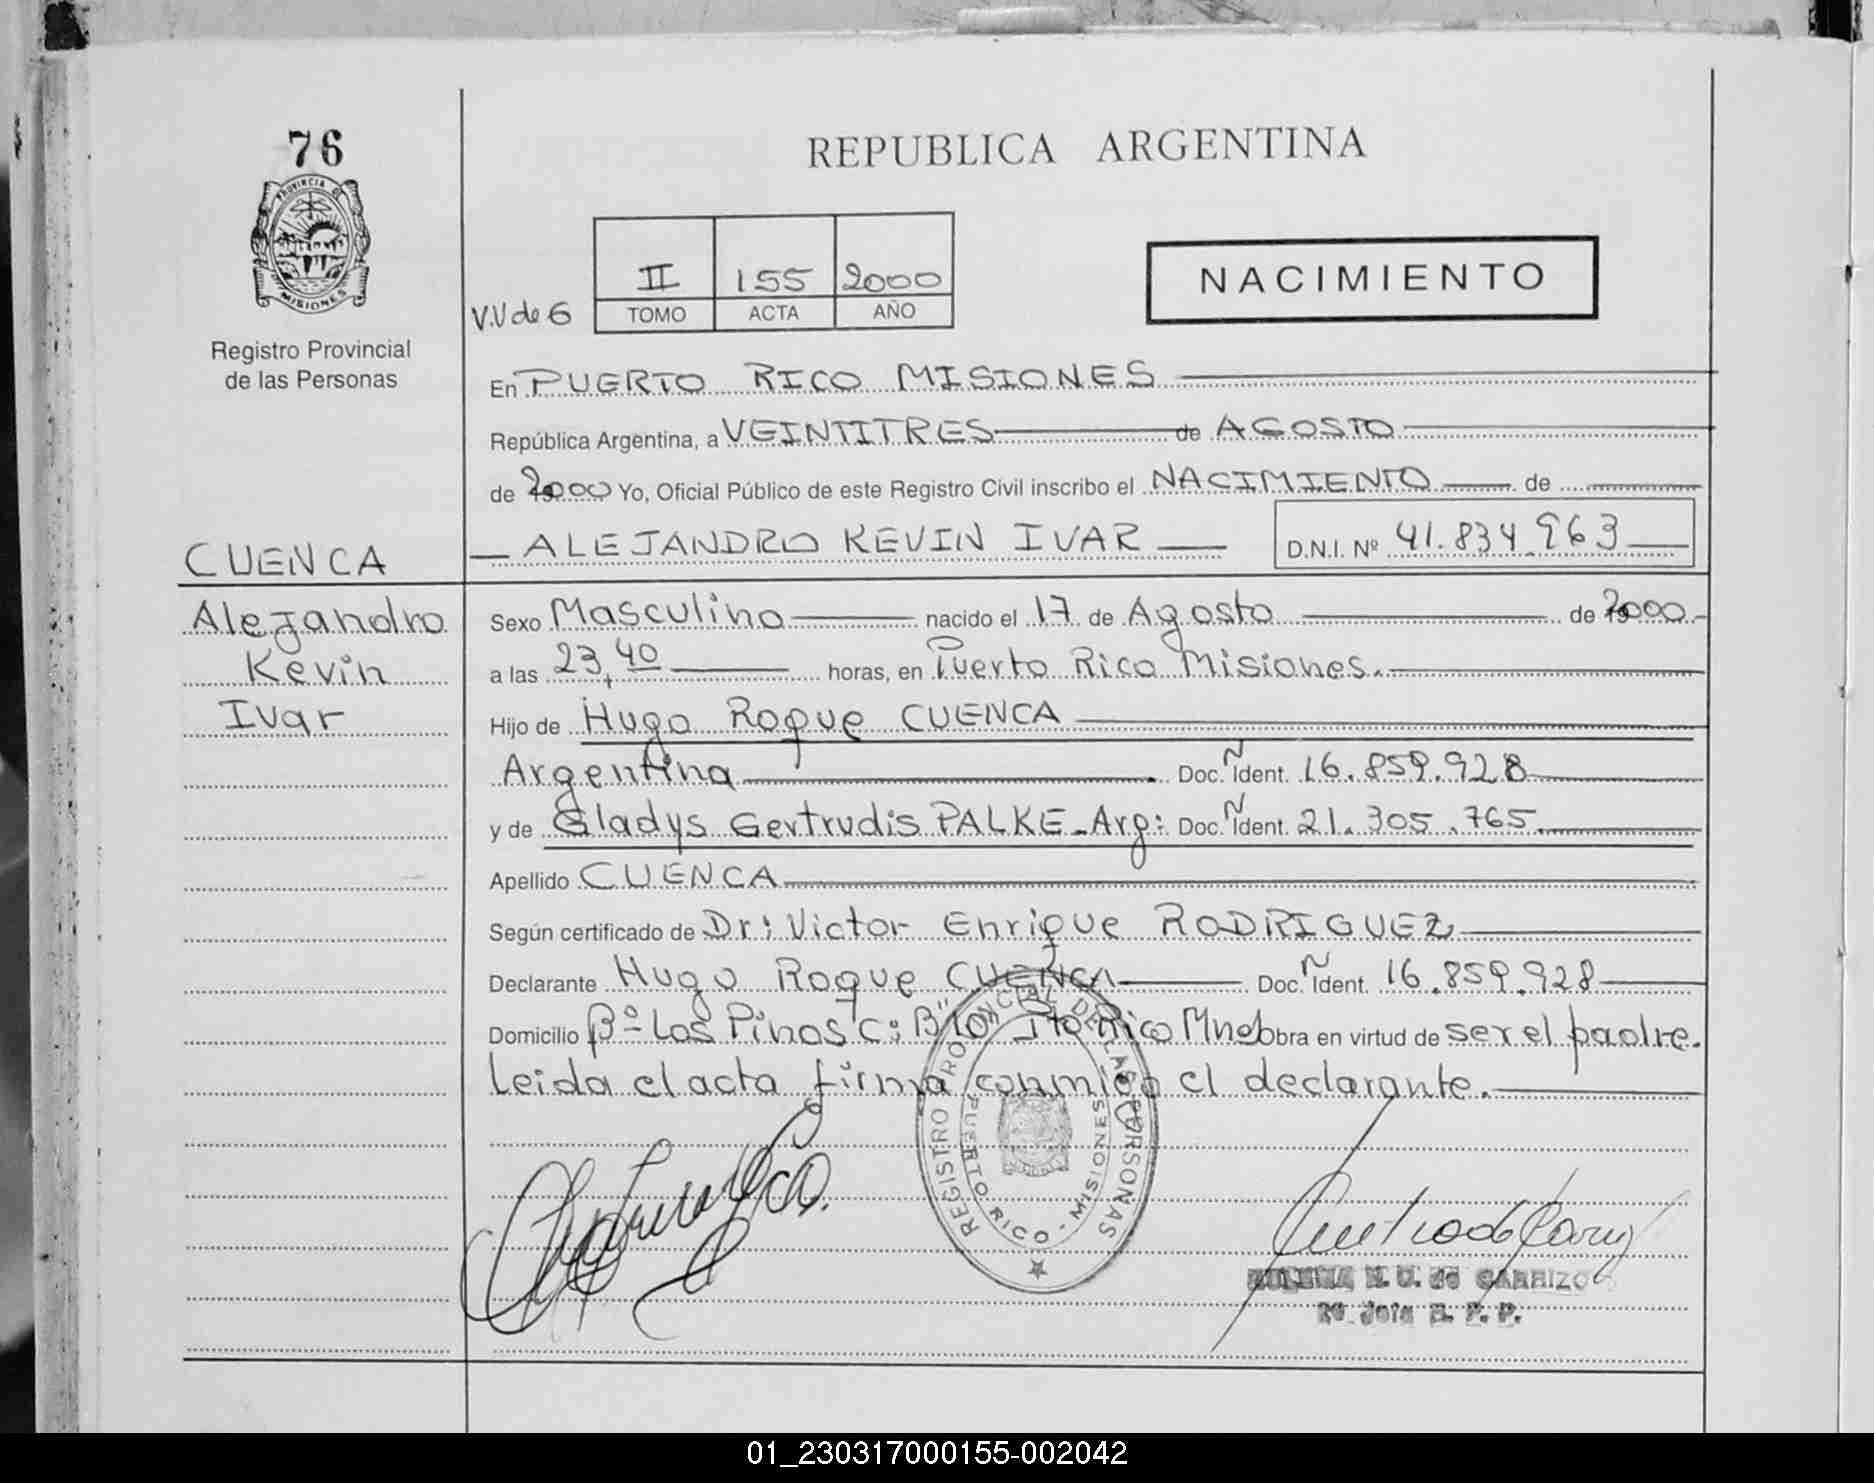 76
PROVINCIA DE
MISIONES
Registro Provincial
de las Personas
REPUBLICA ARGENTINA
II 155 2000
V.V de 6 TOMO ACTA AÑO
NACIMIENTO
En PUERTO RICO MISIONES
República Argentina, a VEINTITRES de AGOSTO
de 2000 Yo, Oficial Público de este Registro Civil inscribo el NACIMIENTO de
ALEJANDRO KEVIN IVAR D.N.I. Nº 41.834.963
CUENCA
Alejandro
Kevin
Ivar
Sexo Masculino nacido el 17 de Agosto de 2000.-
a las 23,40 horas, en Puerto Rico Misiones.
Hijo de Hugo Roque CUENCA
Argentina Doc. Ñ Ident. 16.859.928
y de Gladys Gertrudis PALKE-Arg: Doc. Ñ Ident. 21.305.765
Apellido CUENCA
Según certificado de Dr: Victor Enrique RODRIGUEZ
Declarante Hugo Roque CUENCA Doc. Ñ Ident. 16.859.928
Domicilio Bº- Los Pinos C: Rico Mnes Obra en virtud de ser el padre.
Leida el acta firma conmigo el declarante.
REGISTRO PROVINCIAL DE LAS PERSONAS
PUERTO RICO - MISIONES
de CARRIZO
01_230317000155-002042